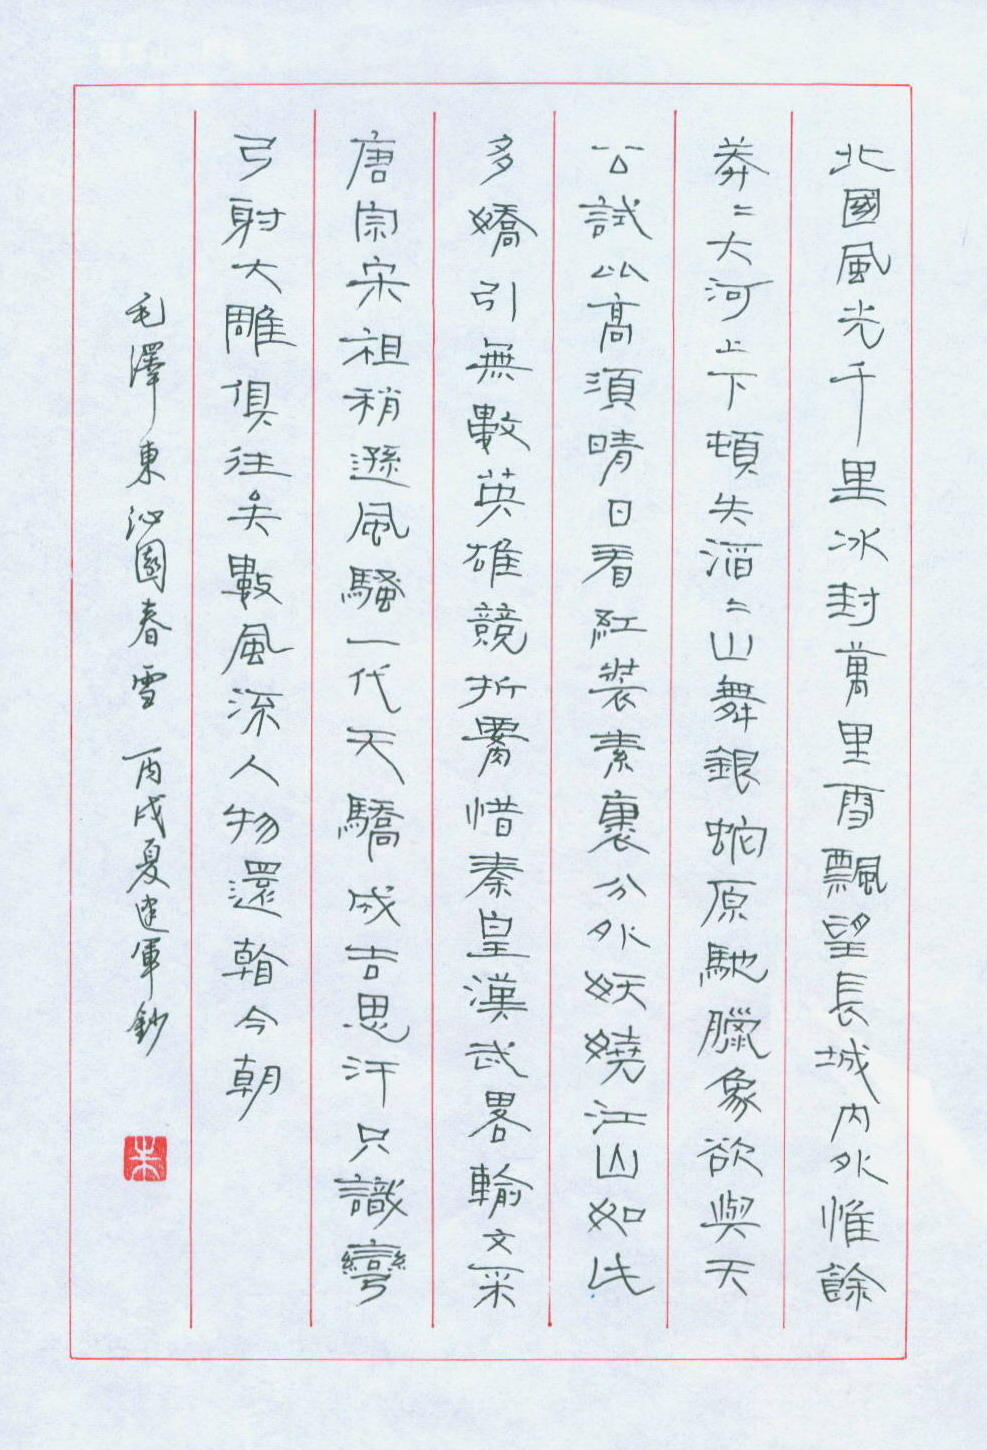 北國風光千里冰封萬里雪飄望長城內外惟餘
莽〻大河上下頓失滔〻山舞銀蛇原馳臘象欲與天
公試比高須晴日看紅裝素裹分外妖嬈江山如此
多嬌引無數英雄競折腰惜秦皇漢武畧輸文采
唐宗宋祖稍遜風騷一代天驕成吉思汗只識彎
弓射大雕俱往矣數風流人物還看今朝
毛澤東沁園春雪 丙戌夏建軍鈔
朱